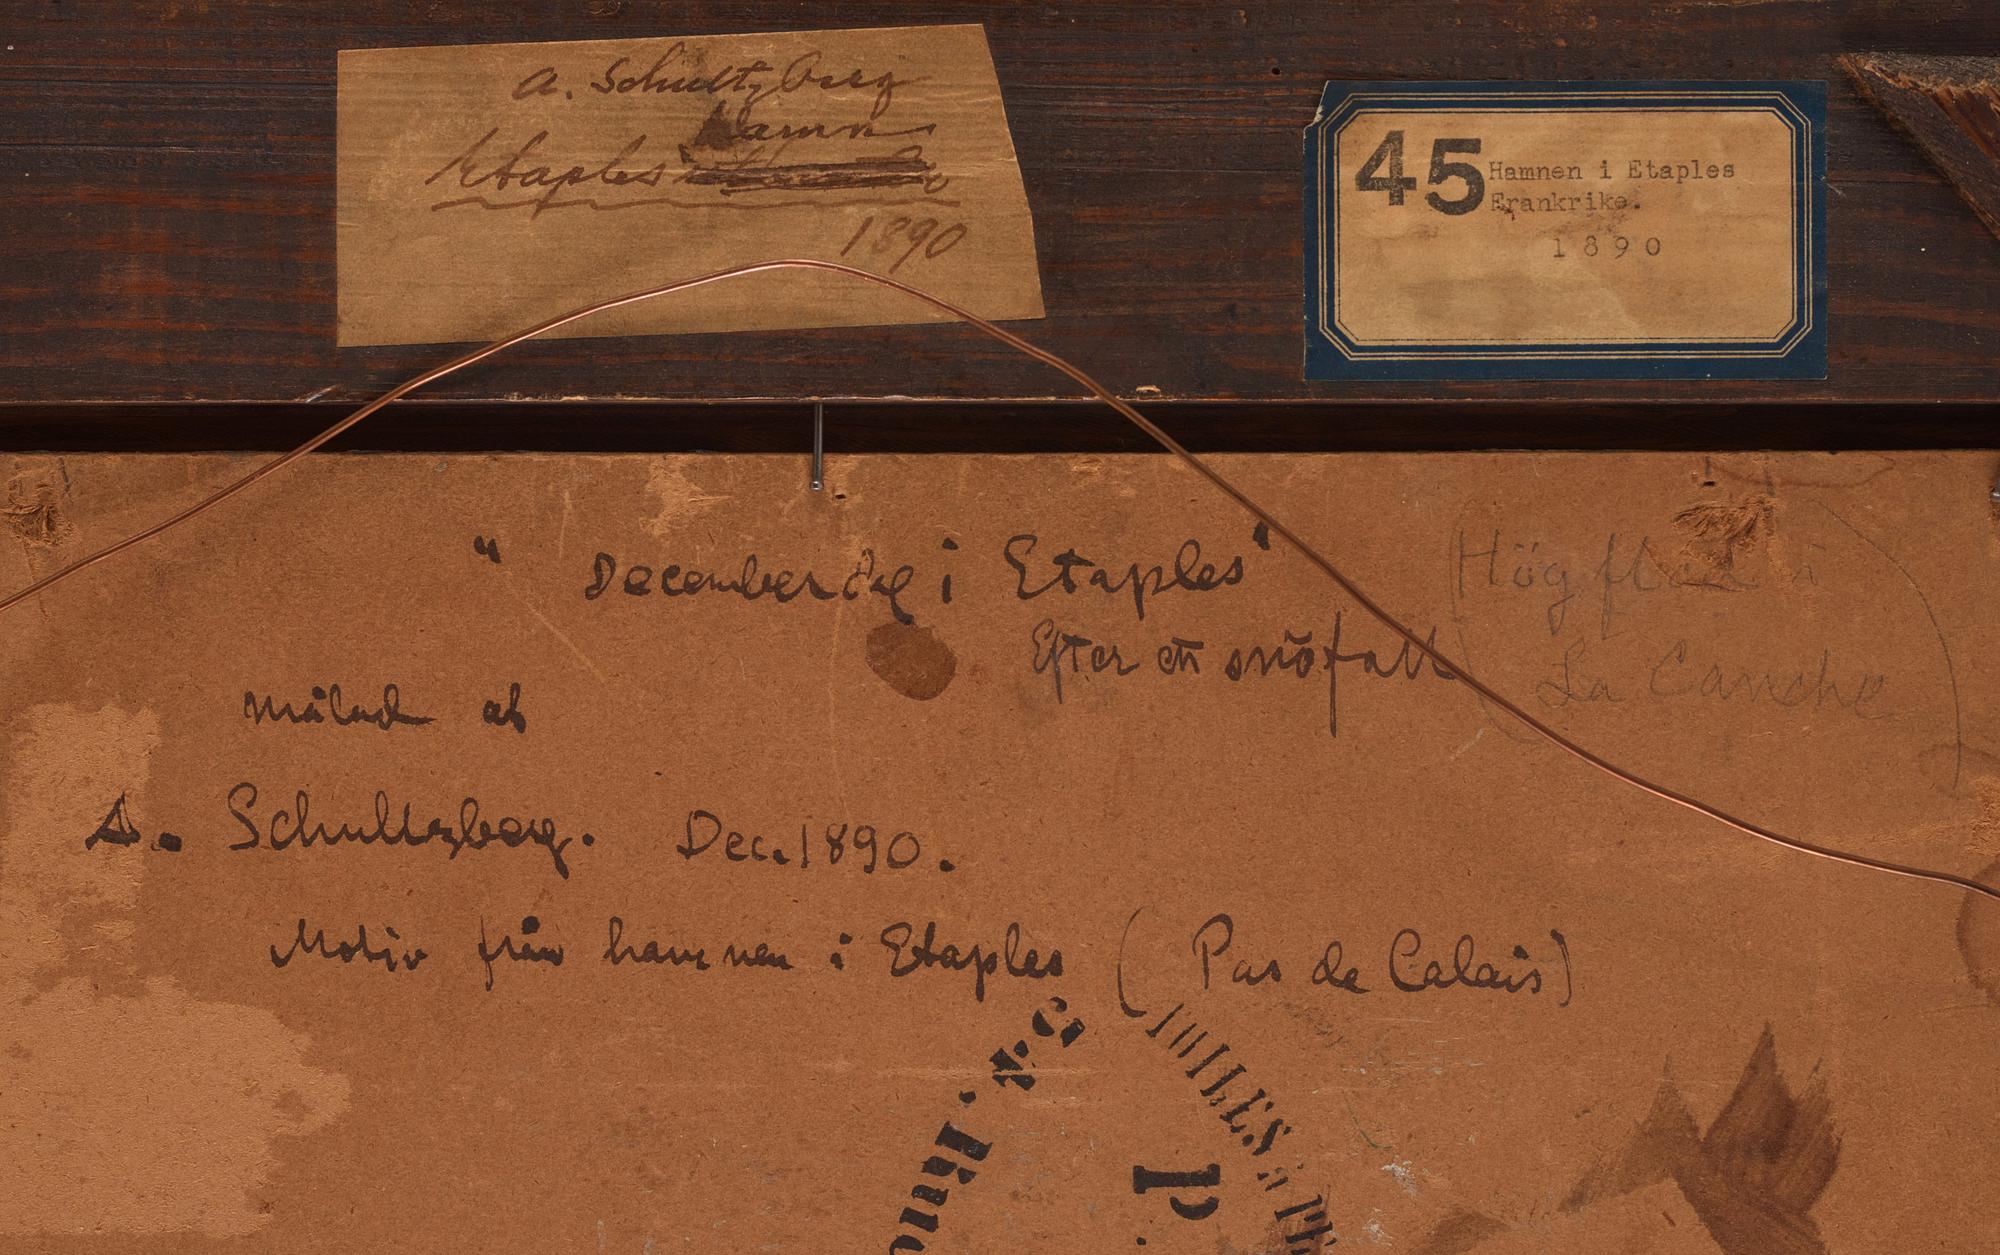 A. Schultzberg
Hamn
Etaples
1890
45
Hamnen i Etaples
Frankrike.
1890
" Decemberdag i Etaples"
Efter ett snöfall
Hög flod i
La Canche
målad af
A. Schultzberg. Dec. 1890.
Motiv från hamnen i Etaples ( Pas de Calais)
JULES